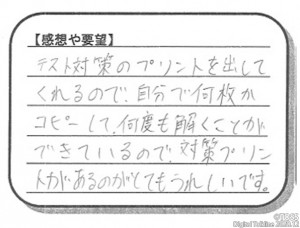 【感想や要望】
テスト対策のプリントを出して
くれるので、自分で何枚か
コピーして、何度も解くことが
できているので、対策プリン
トがあるのがとてもうれしいです。